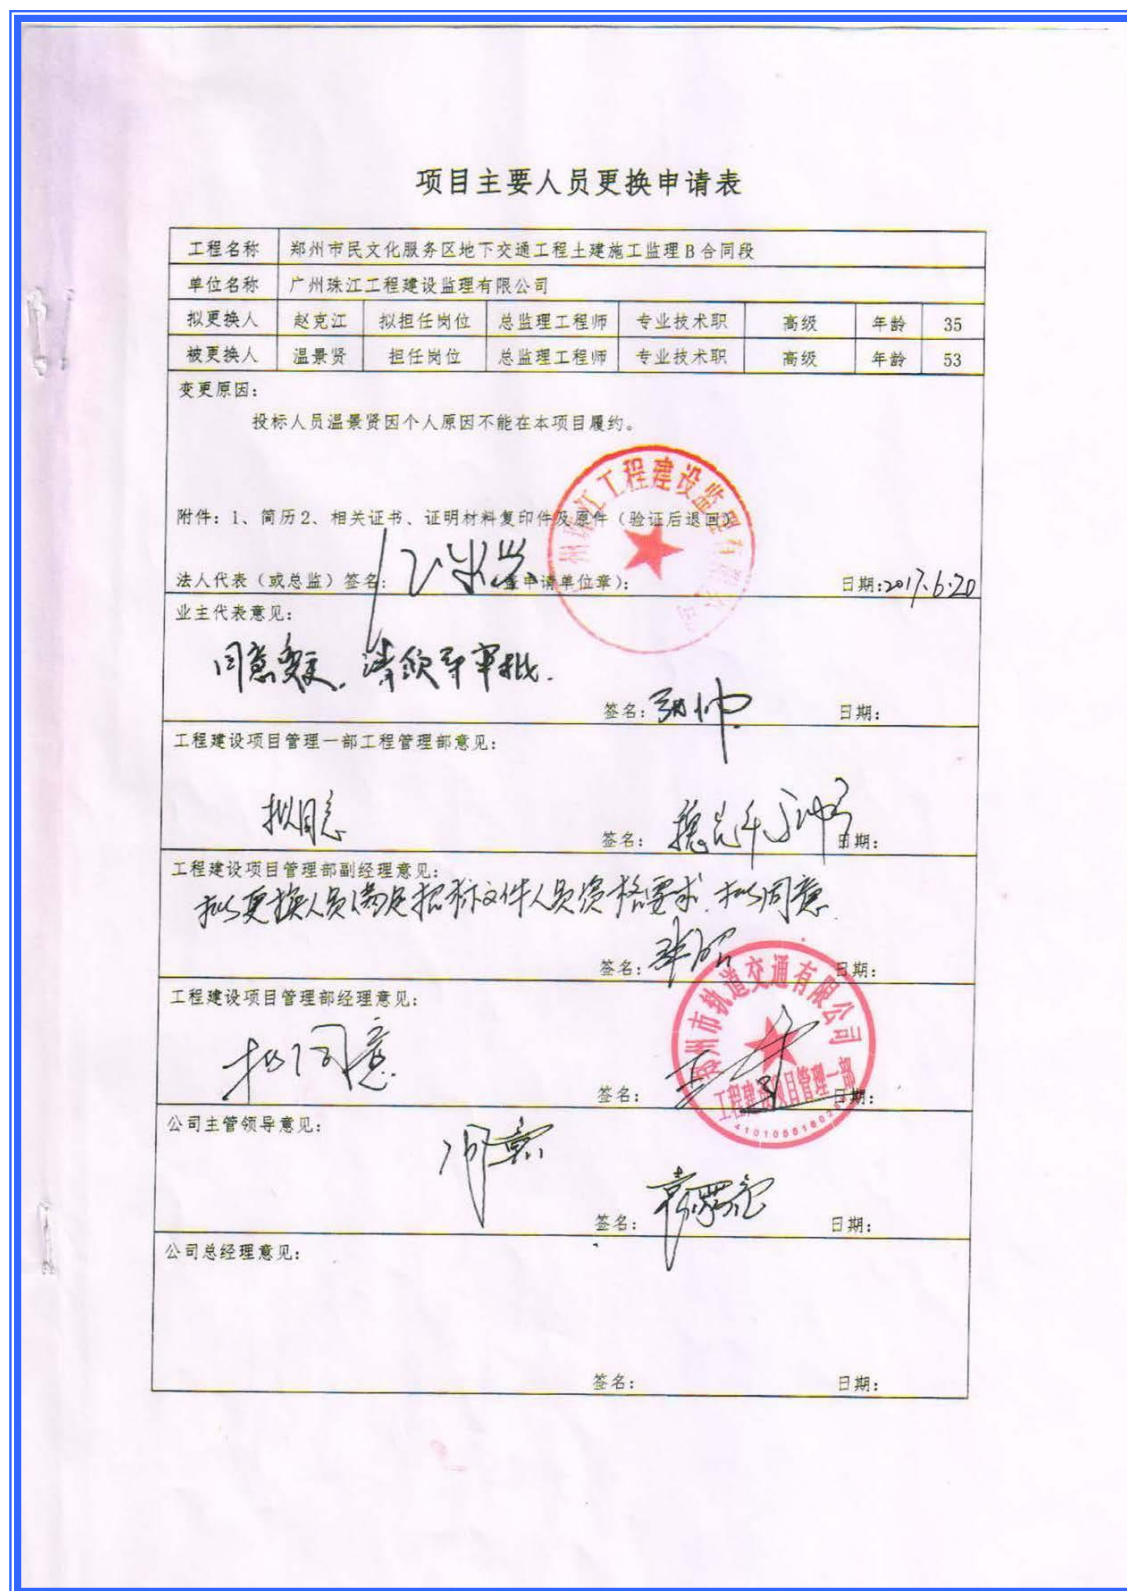 项目主要人员更换申请表
工程名称 郑州市民文化服务区地下交通工程土建施工监理B合同段
单位名称 广州珠江工程建设监理有限公司
拟更换人 赵克江 拟担任岗位 总监理工程师 专业技术职 高级 年龄 35
被更换人 温景贤 担任岗位 总监理工程师 专业技术职 高级 年龄 53
变更原因:
投标人员温景贤因个人原因不能在本项目履约。
州珠江工程建设监理有限公司
附件:1、简历2、相关证书、证明材料复印件及原件(验证后退回)
法人代表(或总监)签名: 盖申请单位章): 日期:2017.6.20
业主代表意见:
同意变更,请领导审批.
签名: 日期:
工程建设项目管理一部工程管理部意见:
拟同意
签名: 日期:
工程建设项目管理部副经理意见:
拟更换人员满足招标文件人员资格要求,拟同意
签名: 日期:
郑州市轨道交通有限公司
工程建设项目管理部经理意见:
拟同意.
签名: 日期:
工程建设项目管理一部
公司主管领导意见:
同意
签名: 日期:
公司总经理意见:
签名: 日期: